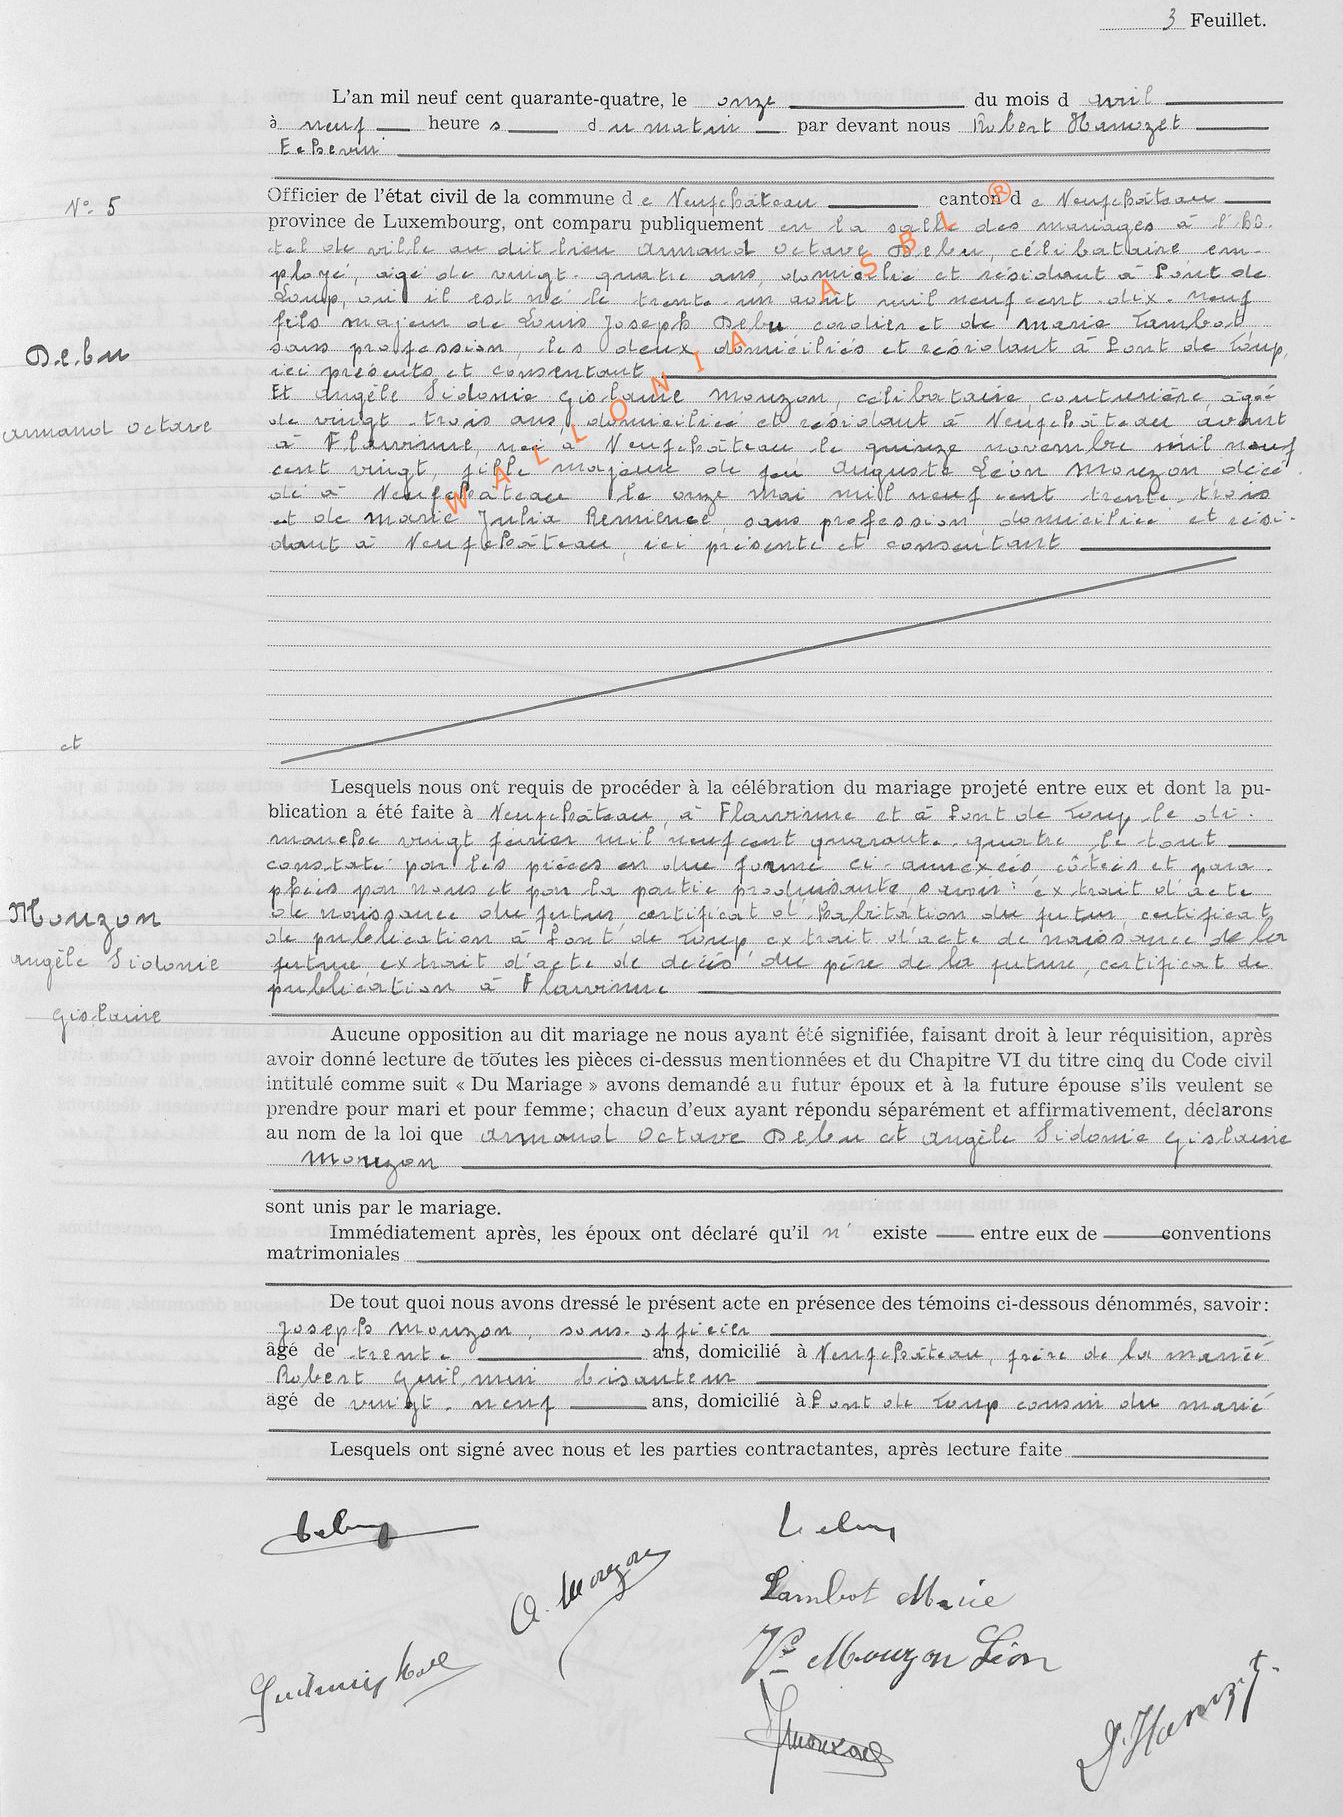 3 Feuillet.
L'an mil neuf cent quarante-quatre, le onze du mois d avril
à neuf heure s du matin par devant nous Robert Hanozet
Echevin
Officier de l'état civil de la commune d e Neufchâteau canton d e Neufchâteau
N° 5
province de Luxembourg, ont comparu publiquement en la salle des mariages à l'hô-
tel de ville au dit lieu Armand Octave Debu, célibataire em-
ployé, âgé de vingt-quatre ans, domicilié et résidant à Pont de
Loup, où il est né le trente-un août mil neuf cent dix-neuf
fils majeur de Louis Joseph Debu cordier et de Marie Lambot
sans profession, les deux domiciliés et résidant à Pont de Loup,
Debu
ici présents et consentant
Et Angèle Sidonie Gislaine Mouzon, célibataire, couturière, âgée
de vingt-trois ans, domiciliée et résidant à Neufchâteau avant
Armand Octave
à Flawinne, née à Neufchâteau le quinze novembre mil neuf
cent vingt, fille majeure de feu Auguste Léon Mouzon, décé-
dé à Neufchâteau le onze mai mil neuf cent trente-trois
et de Marie Julia Remience, sans profession, domiciliée et rési-
dant à Neufchâteau, ici présente et consentant
WALLONIA ASBL ®
et
Lesquels nous ont requis de procéder à la célébration du mariage projeté entre eux et dont la pu-
blication a été faite à Neufchâteau, à Flawinne et à Pont de Loup le di-
manche vingt février mil neuf cent quarante-quatre le tout
constaté par les pièces en due forme ci-annexées, côtées et para-
phées par nous et par la partie produisante, savoir: extrait d'acte
Mouzon
de naissance du futur, certificat d'habitation du futur, certificat
de publication à Pont de Loup, extrait d'acte de naissance de la
Angèle Sidonie
future, extrait d'acte de décès du père de la future, certificat de
publication à Flawinne
Gislaine
Aucune opposition au dit mariage ne nous ayant été signifiée, faisant droit à leur réquisition, après
avoir donné lecture de toutes les pièces ci-dessus mentionnées et du Chapitre VI du titre cinq du Code civil
intitulé comme suit « Du Mariage » avons demandé au futur époux et à la future épouse s'ils veulent se
prendre pour mari et pour femme; chacun d'eux ayant répondu séparément et affirmativement, déclarons
au nom de la loi que Armand Octave Debu et Angèle Sidonie Gislaine
Mouzon
sont unis par le mariage.
Immédiatement après, les époux ont déclaré qu'il n' existe entre eux de conventions
matrimoniales
De tout quoi nous avons dressé le présent acte en présence des témoins ci-dessous dénommés, savoir:
Joseph Mouzon, sous-officier
âgé de trente ans, domicilié à Neufchâteau, frère de la mariée
Robert Guilmin bisauteur
âgé de vingt-neuf ans, domicilié à Pont de Loup cousin du marié
Lesquels ont signé avec nous et les parties contractantes, après lecture faite
Debu
Debu
A. Mouzon
Lambot Marie
Ve Mouzon Léon
JMouzon
R. Hanozet